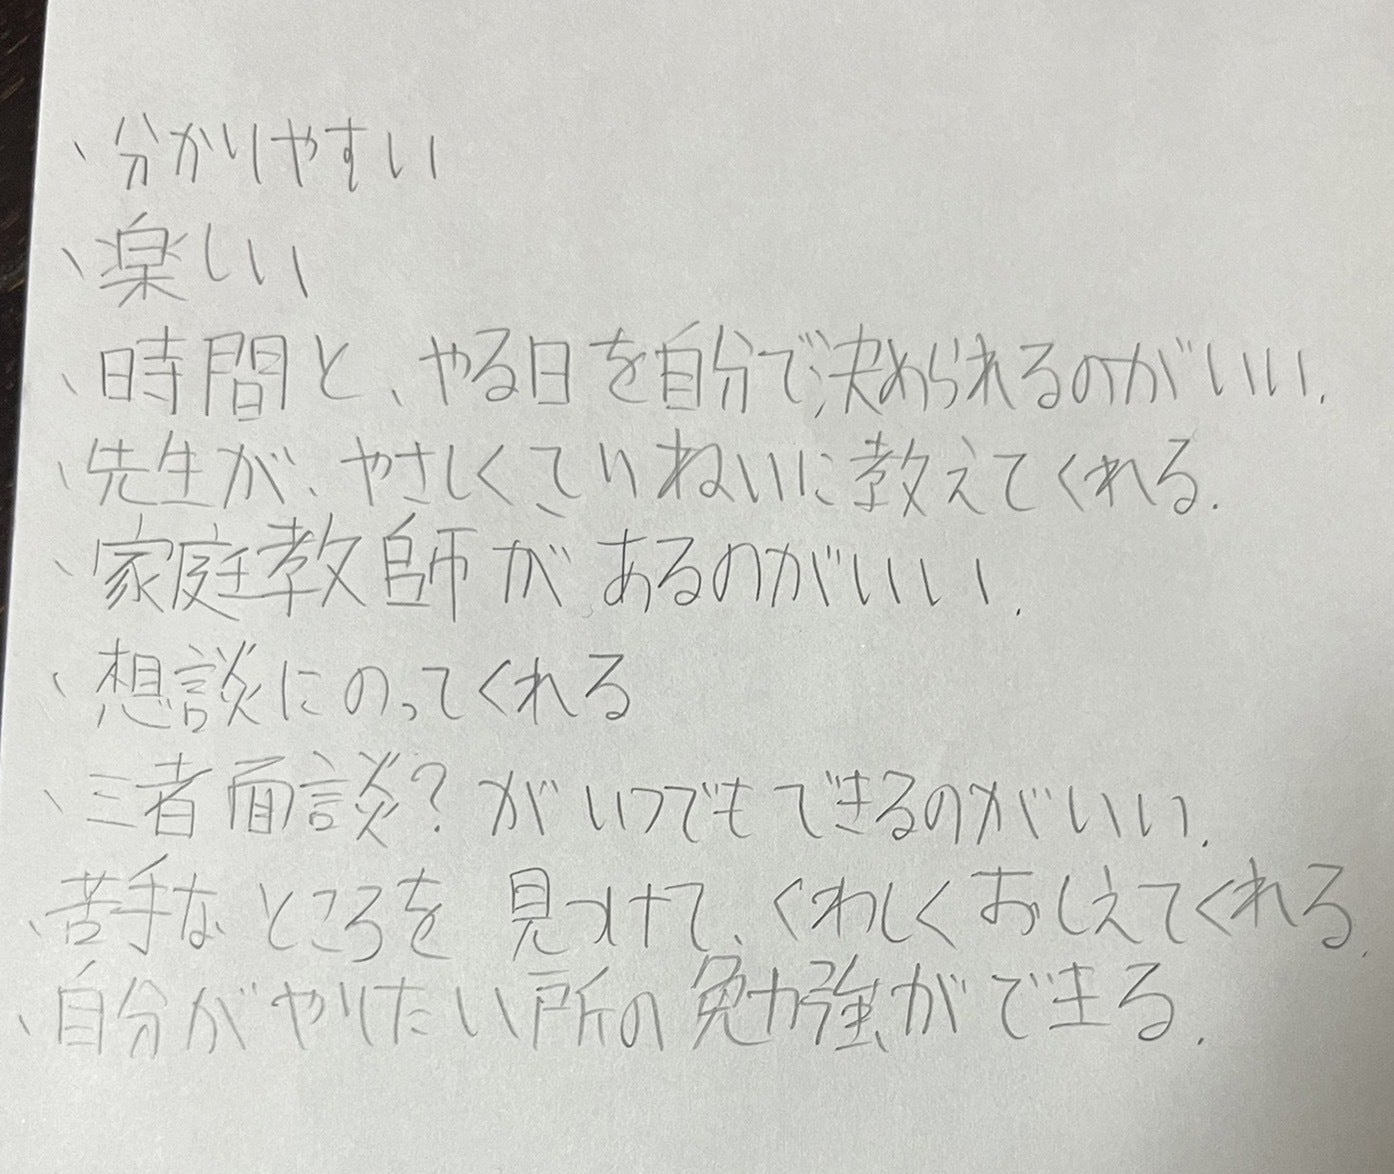 、分かりやすい
、楽しい
、時間と、やる日を自分で決められるのがいい.
、先生が、やさしくていねいに教えてくれる.
、家庭教師があるのがいい.
、想談にのってくれる
、三者面談?がいつでもできるのがいい.
、苦手なところを見つけて、くわしくおしえてくれる.
、自分がやりたい所の勉強ができる.